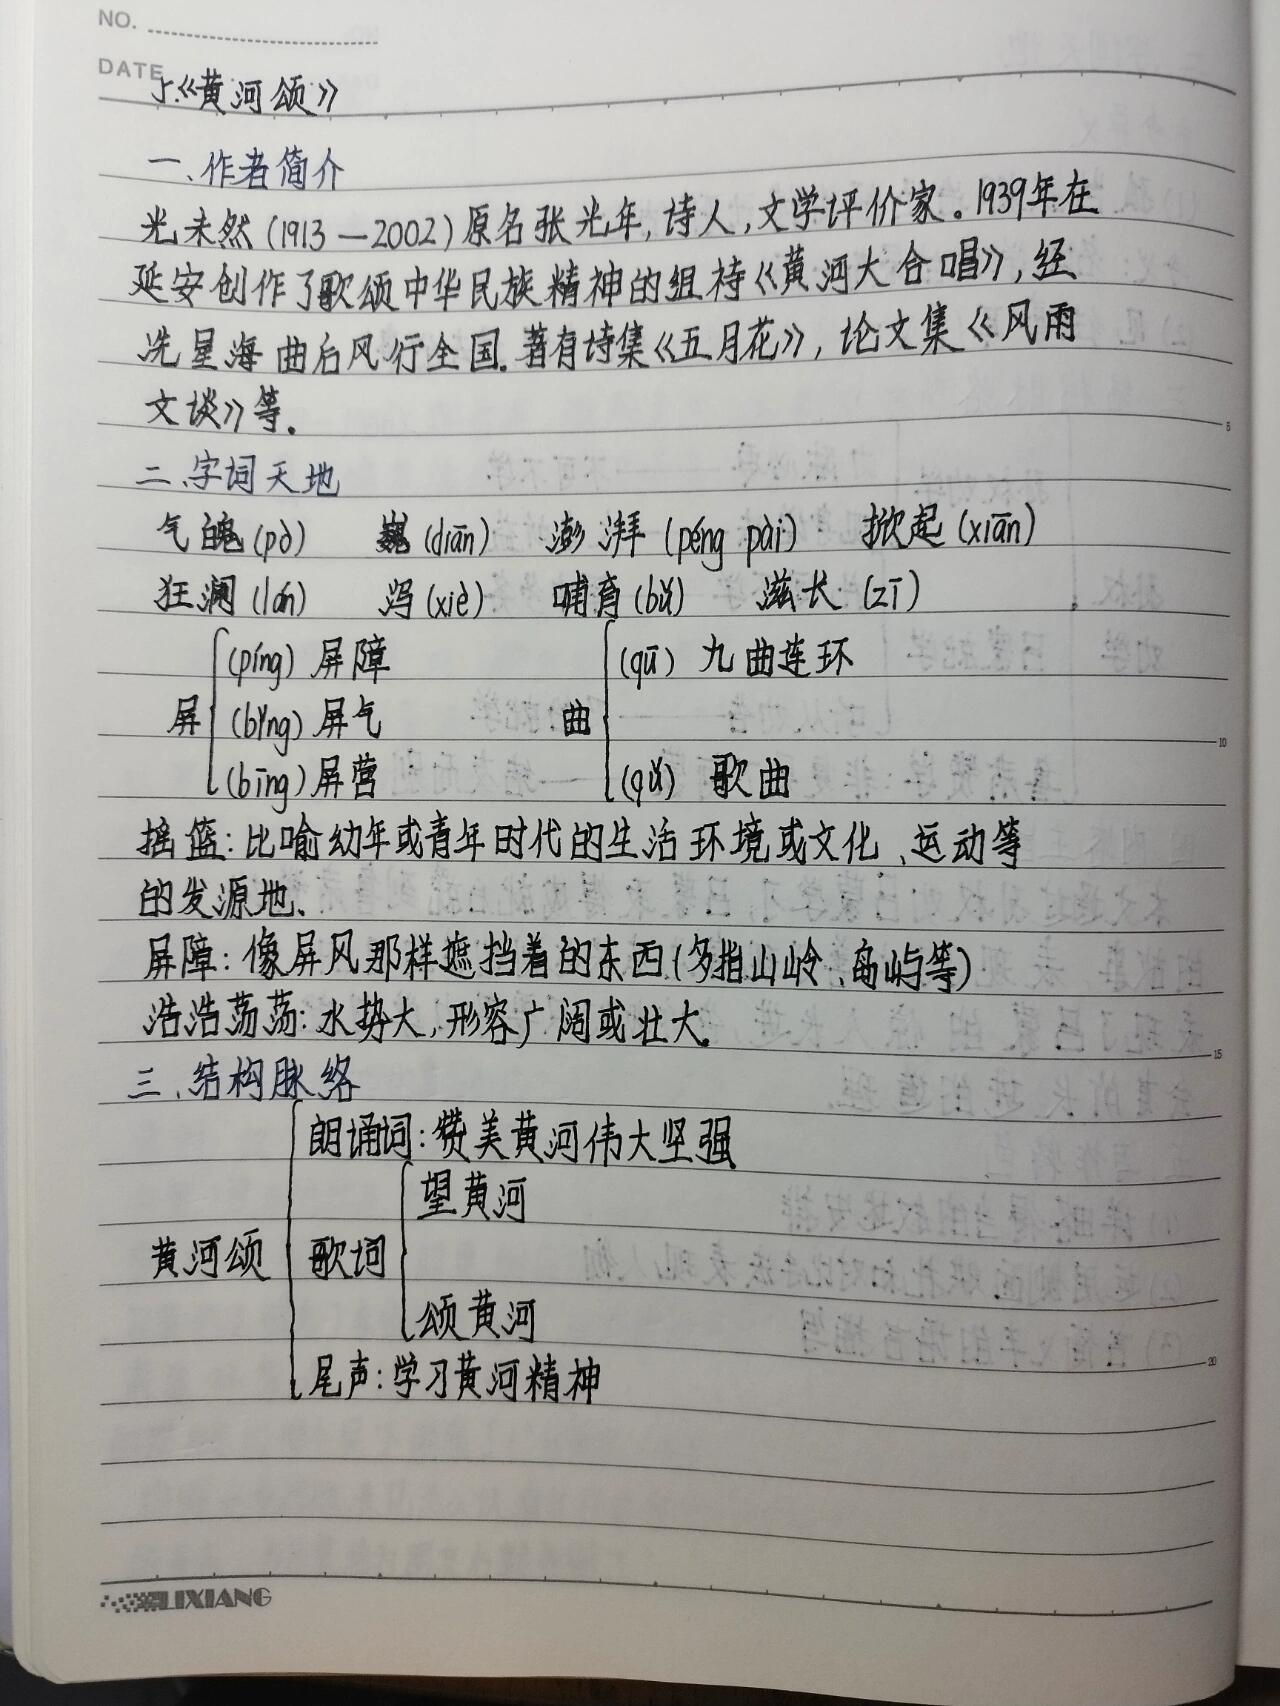 NO.
DATE
5.《黄河颂》
一、作者简介
光未然(1913—2002)原名张光年,诗人,文学评价家。1939年在
延安创作了歌颂中华民族精神的组诗《黄河大合唱》,经
冼星海曲后风行全国.著有诗集《五月花》,论文集《风雨
文谈》等.
二、字词天地
气魄(pò) 巍(diān) 澎湃(péng pài) 掀起(xiān)
狂澜(lán) 泻(xiè) 哺育(bǔ) 滋长(zī)
屏 (píng)屏障 (bǐng)屏气 (bīng)屏营
曲 (qū)九曲连环 (qǔ)歌曲
摇篮:比喻幼年或青年时代的生活环境或文化、运动等
的发源地、
屏障:像屏风那样遮挡着的东西(多指山岭、岛屿等)
浩浩荡荡:水势大,形容广阔或壮大.
三、结构脉络
黄河颂
朗诵词:赞美黄河伟大坚强
歌词 望黄河 颂黄河
尾声:学习黄河精神
LIXIANG
5
10
15
20